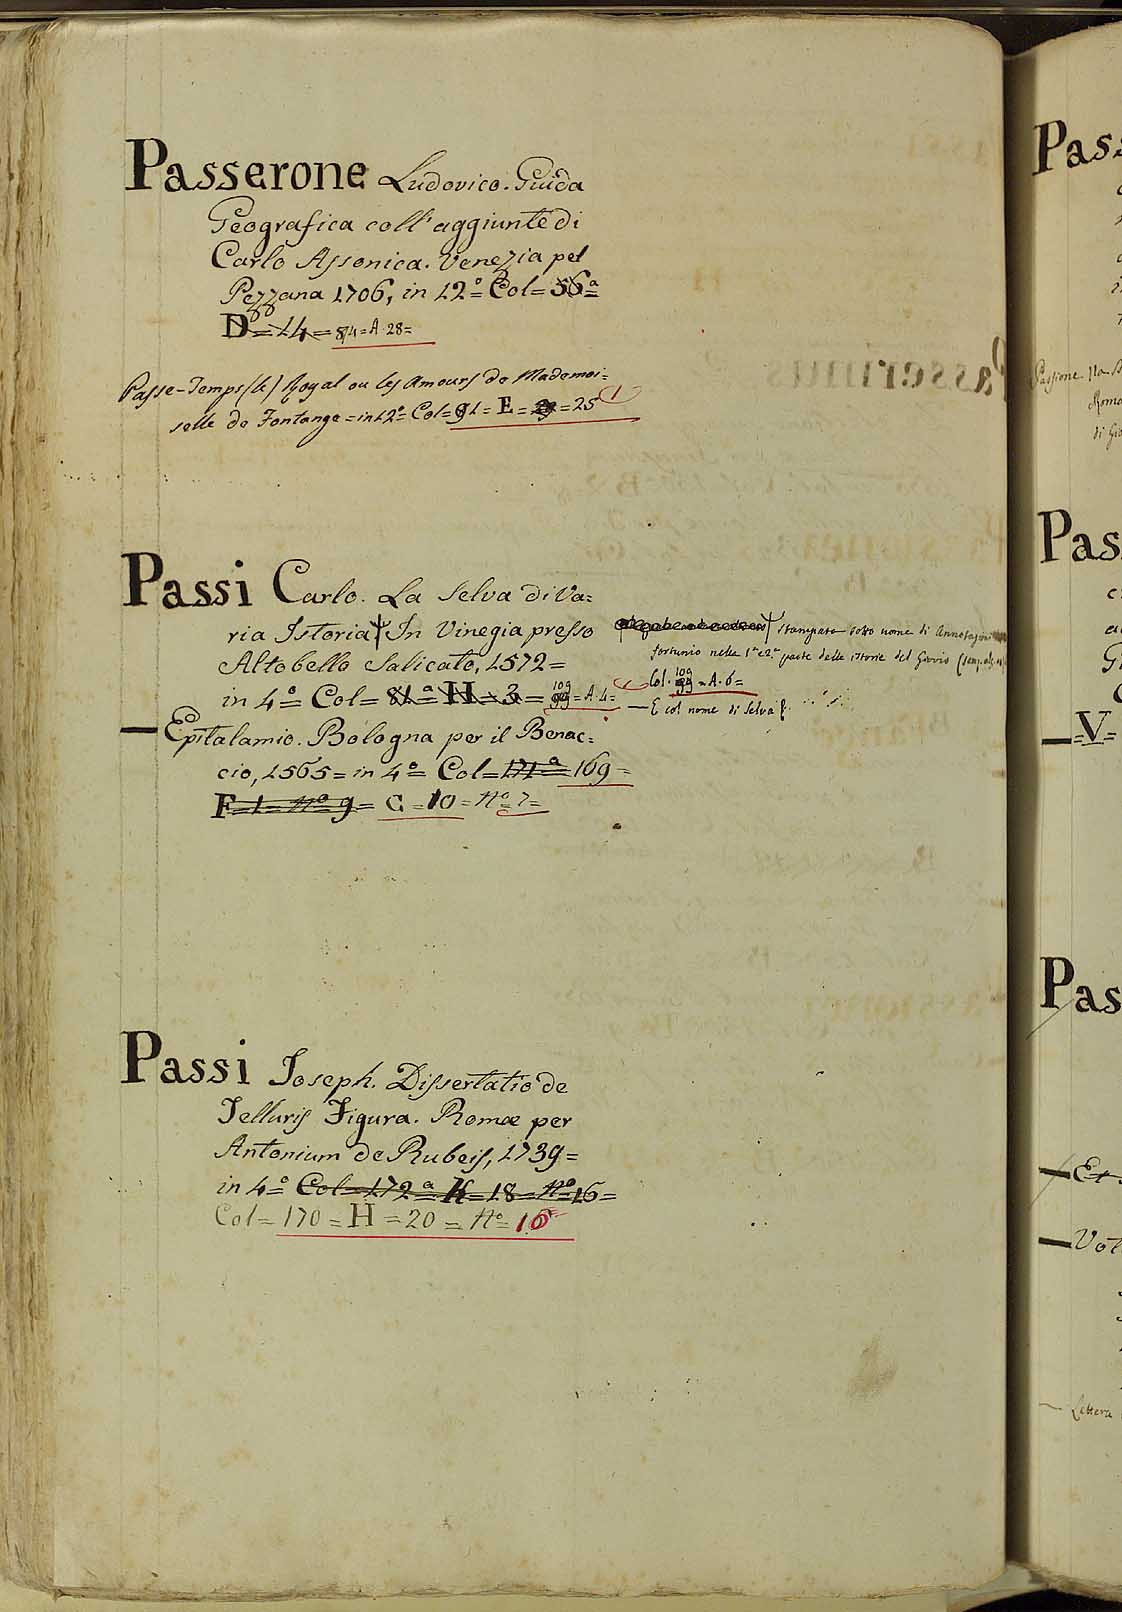 Passerone Ludovico. Guida
Geografica coll' aggiunte di
Carlo Assonica. Venezia pel
Pezzana 1706, in 12º= Col= 56ª=
D= 14= 84= A. 28=
Passe-Temps (le) Royal ou les Amours de Mademoi=
selle de Fontange = in 12º= Col= 91= E = 29 = 25 1
Passi Carlo. La Selva di Va=
ria Istoria † In Vinegia presso
Altobello Salicato, 1572=
in 4º= Col= 81ª= H= 3= 109 99 = A. 4=
† stampata sotto nome di Annotazioni
fortunio nelle 1ª e 2ª parte delle istorie del Giovio
Col. 109 99 = A. 6=
— E col nome di Selva
— Epitalamio. Bologna per il Benac=
cio, 1565= in 4º= Col= 171ª= 169=
F= 1= Nº 9= C= 10= Nº 7=
Passi Joseph. Dissertatio de
Telluris Figura. Romæ per
Antonium de Rubeis, 1739=
in 4º= Col= 172ª K= 18= Nº 16=
Col= 170= H= 20= Nº= 16
Pass
Passione
Roma
di Gio
Pas
—V=
Pas
—Et
—Vot
— Lettera